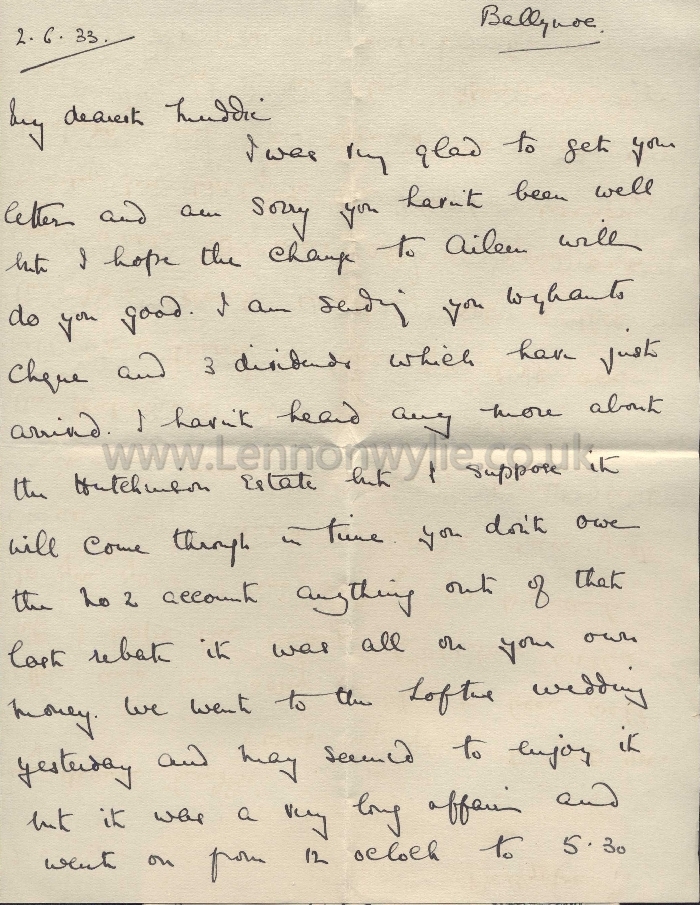 Ballynoe.
2.6.33.
My dearest Muddie
I was very glad to get your
letter and am sorry you havn't been well
but I hope the change to Aileen will
do you good. I am sending you
cheque and 3 dividends which have just
arrived. I havn't heard any more about
www.Lennonwylie.co.uk
the Hutchinson Estate but I suppose it
will come through in time. you don't owe
the No 2 account anything out of that
last rebate it was all on your own
money. We went to the Loftus wedding
yesterday and May seemed to enjoy it
but it was a very long affair and
went on from 12 oclock to 5.30